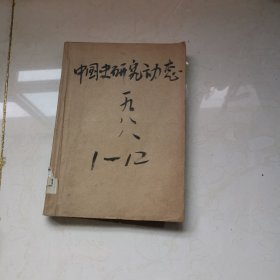 中国史研究动态
一九八八
1—12